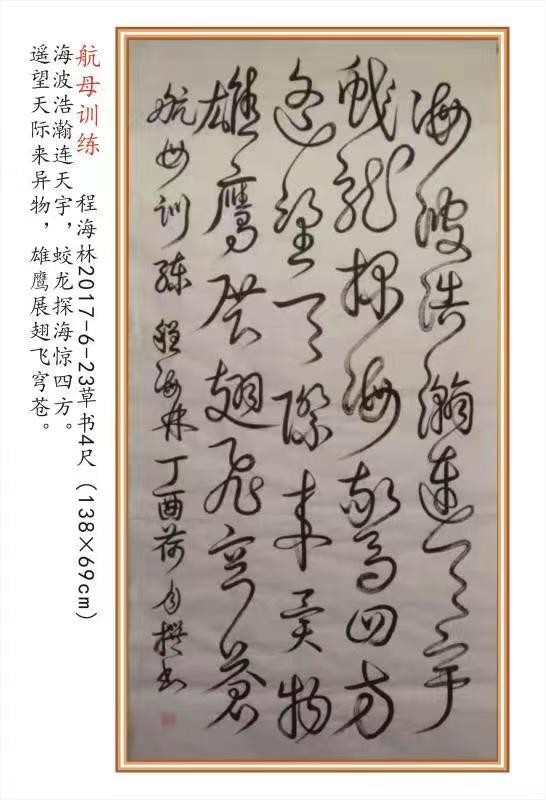 航母训练 程海林2017-6-23草书4尺（138×69cm）
海波浩瀚连天宇，蛟龙探海惊四方。
遥望天际来异物，雄鹰展翅飞穹苍。
海波浩瀚連天宇
蛟龍探海驚四方
遥望天際来異物
雄鷹展翅飛穹蒼
航母训练 程海林 丁酉荷月自撰书